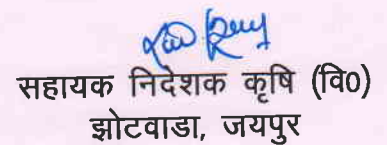 सहायक निदेशक कृषि (वि0)
झोटवाडा, जयपुर